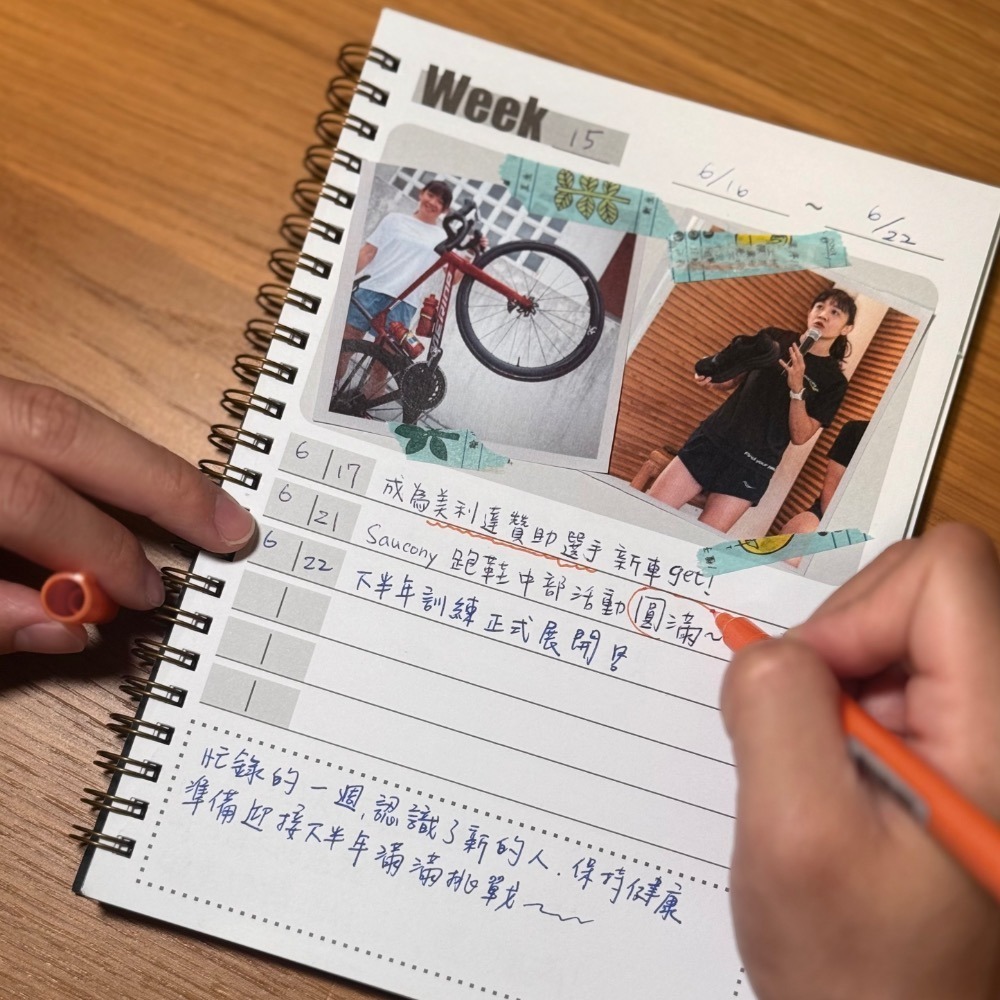 Week 15
6/16 ~ 6/22
6/17 成為美利達贊助選手 新車get!
6/21 Saucony 跑鞋中部活動圓滿~
6/22 下半年訓練正式展開
忙錄的一週,認識了新的人.保持健康
準備迎接下半年滿滿挑戰~